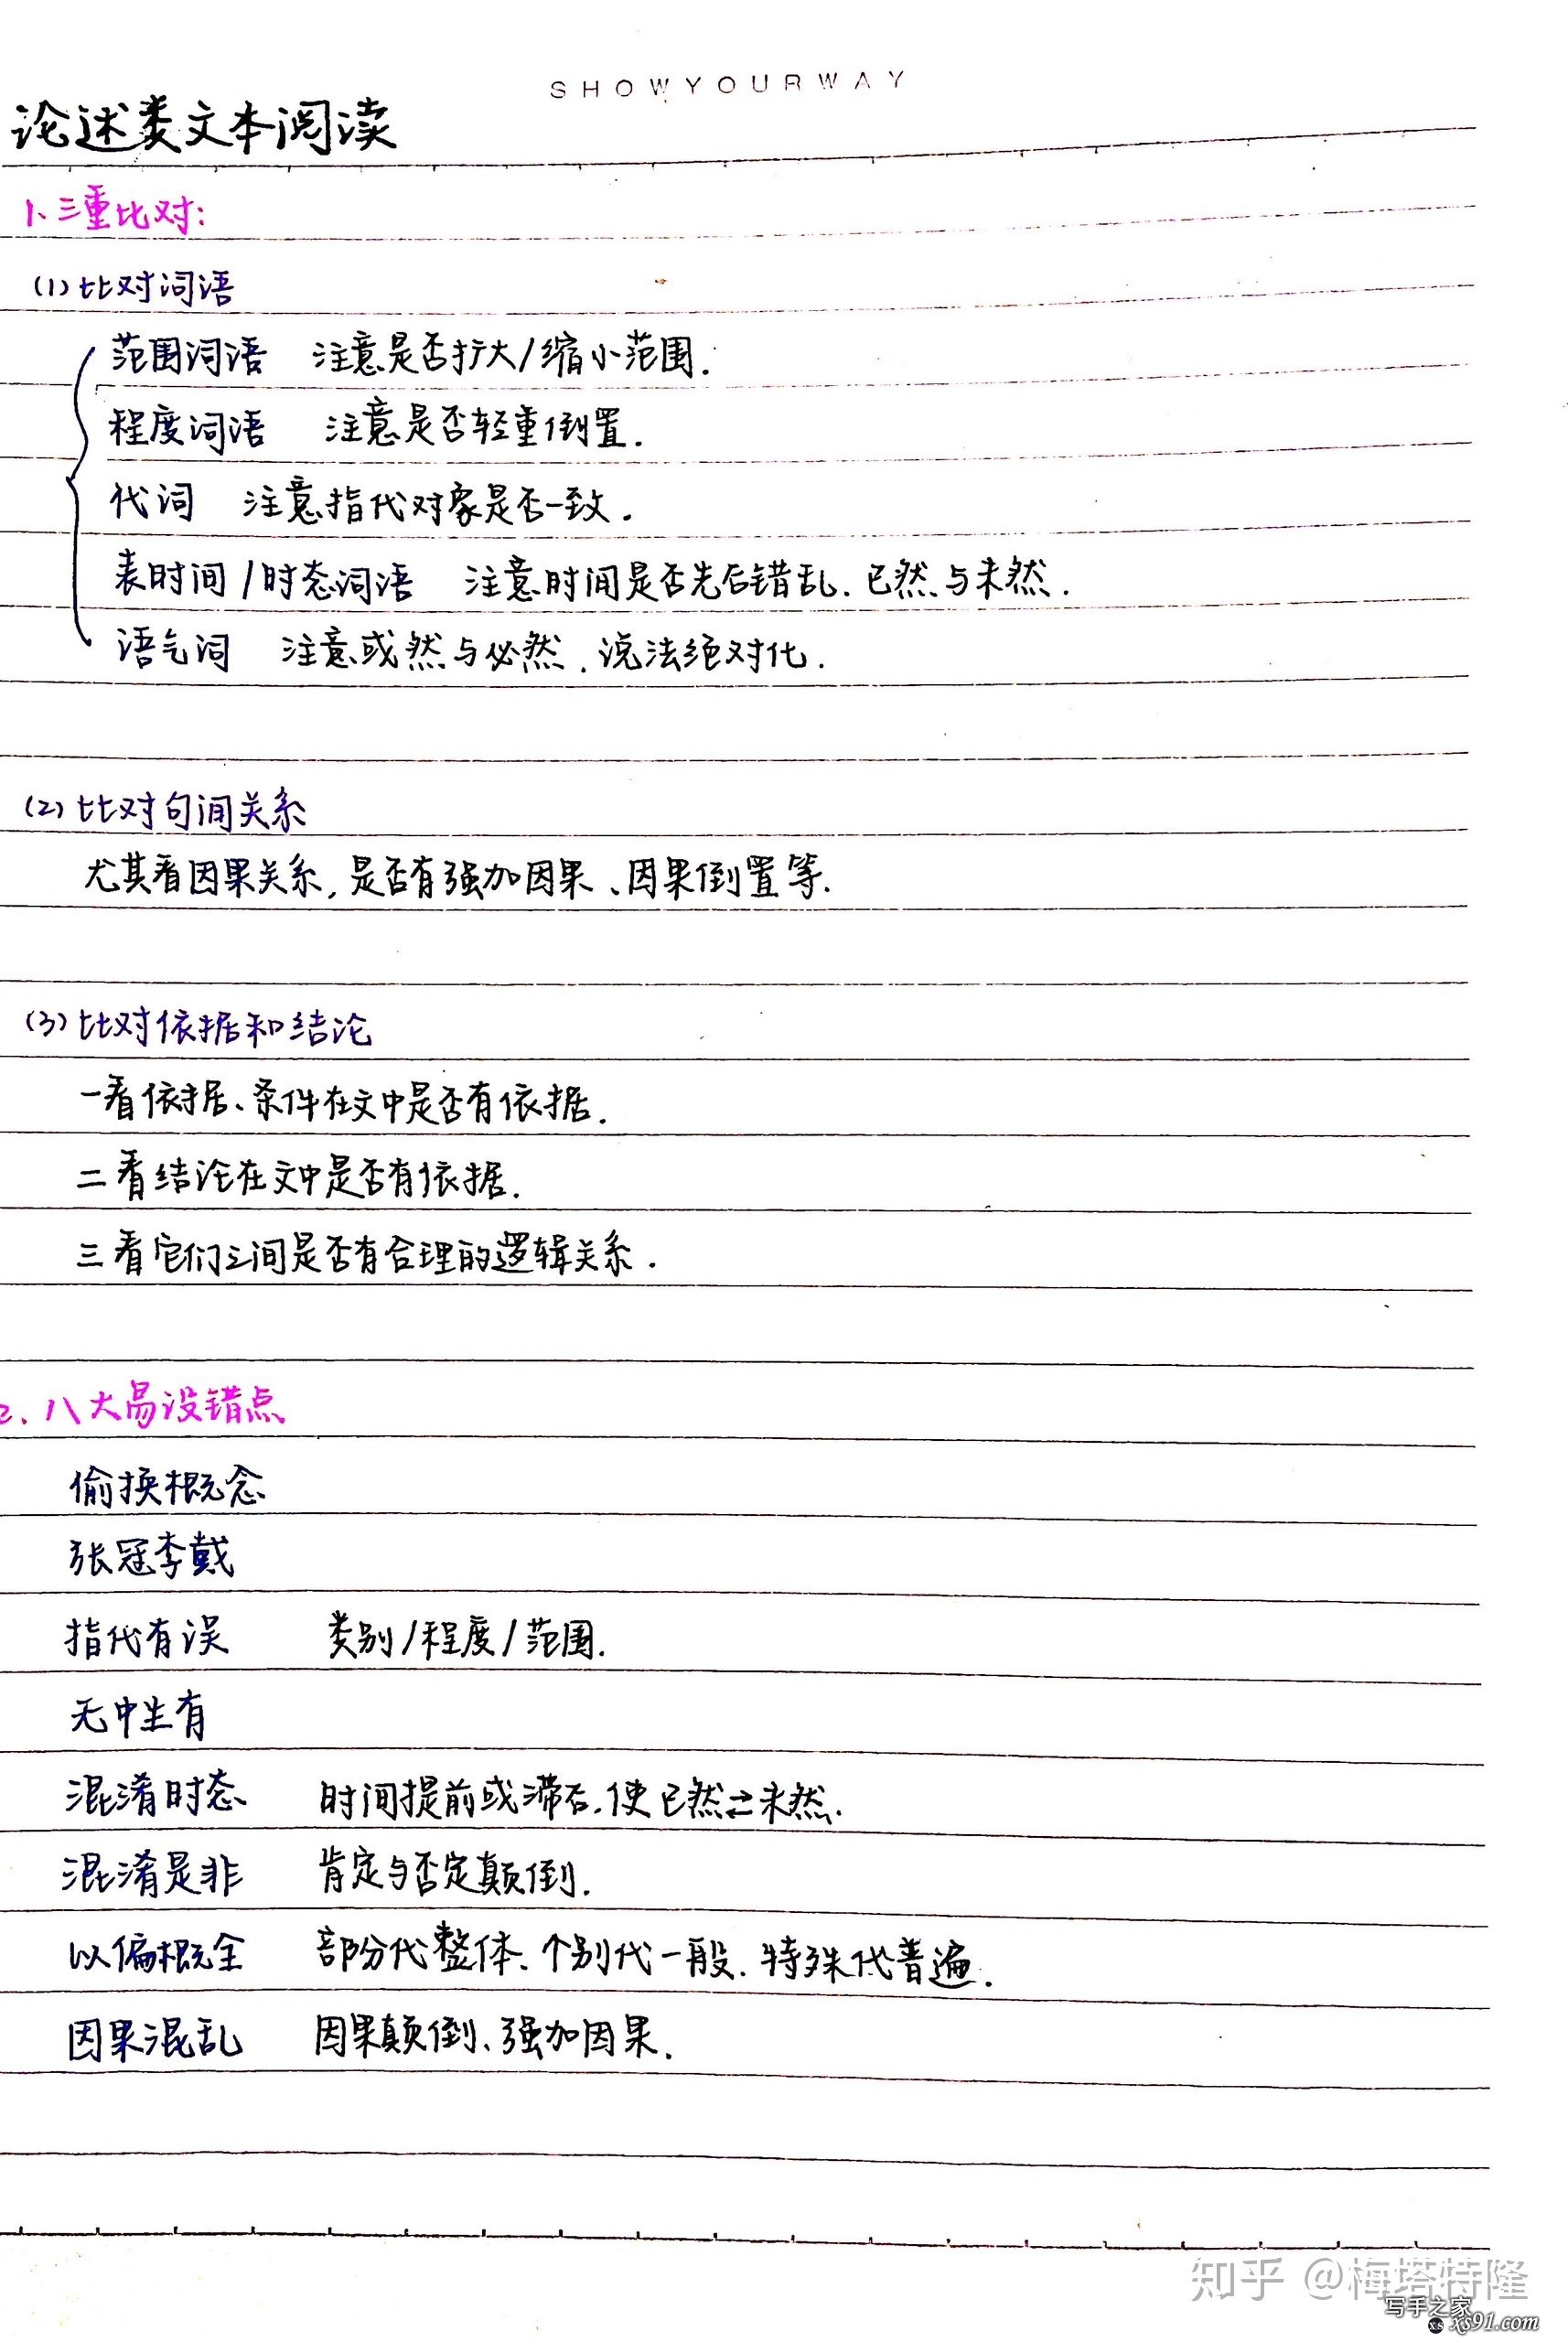 SHOWYOURWAY
论述类文本阅读
1、三重比对:
(1)比对词语
范围词语 注意是否扩大/缩小范围.
程度词语 注意是否轻重倒置.
代词 注意指代对象是否一致.
表时间/时态词语 注意时间是否先后错乱、已然与未然.
语气词 注意或然与必然、说法绝对化.
(2)比对句间关系
尤其看因果关系,是否有强加因果、因果倒置等.
(3)比对依据和结论
一看依据、条件在文中是否有依据.
二看结论在文中是否有依据.
三看它们之间是否有合理的逻辑关系.
2.八大易设错点
偷换概念
张冠李戴
指代有误 类别/程度/范围.
无中生有
混淆时态 时间提前或滞后,使已然⇄未然.
混淆是非 肯定与否定颠倒.
以偏概全 部分代整体、个别代一般、特殊代普遍.
因果混乱 因果颠倒、强加因果.
知乎 @梅塔特隆
写手之家
xs xs91.com